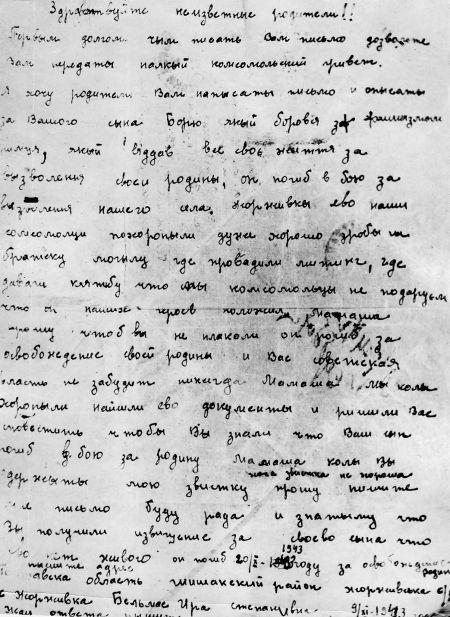 Здравствуйте неизвестные родители!!
Первым долгом чым писать Вам письмо дозвольте
Вам передаты палкый комсомольский привет.
Я хочу родители Вам написаты письмо и описаты
за Вашого сына Борю якый боровся за фашизмом
якый віддав все своє життя за
вызволения своєи родины, он погиб в бою за
вызволения нашего села Жорнивкы ево наши
комсомольци похоронылы дуже хорошо зробылы
братску могылу где проводили митинг, где
давали клятбу что мы комсомольцы не подаруем
что он нашы кров Мамаша
прошу чтоб вы не плакали он погиб за
освобождение своей родины и Вас советская
власть не забудит никогда Мамаша мы колы
хоронылы найшли ево документы и ришили Вас
сповістить чтобы Вы знали что Ваш сын
погиб в бою за родину Мамаша колы Вы
хоча звистка не хороша
одержыте мою звистку прошу пишите
мне письмо буду рада и знатыму что
Вы получили извищение за своєво сына что
1943
ево нет живого он погиб 20/ІХ году за освобождение родины
пишите адрес
область шишакский район Жорнивска с/р
с Жорнивка Бельмас Ира степановна 9/ХІ-1943
Жду ответа